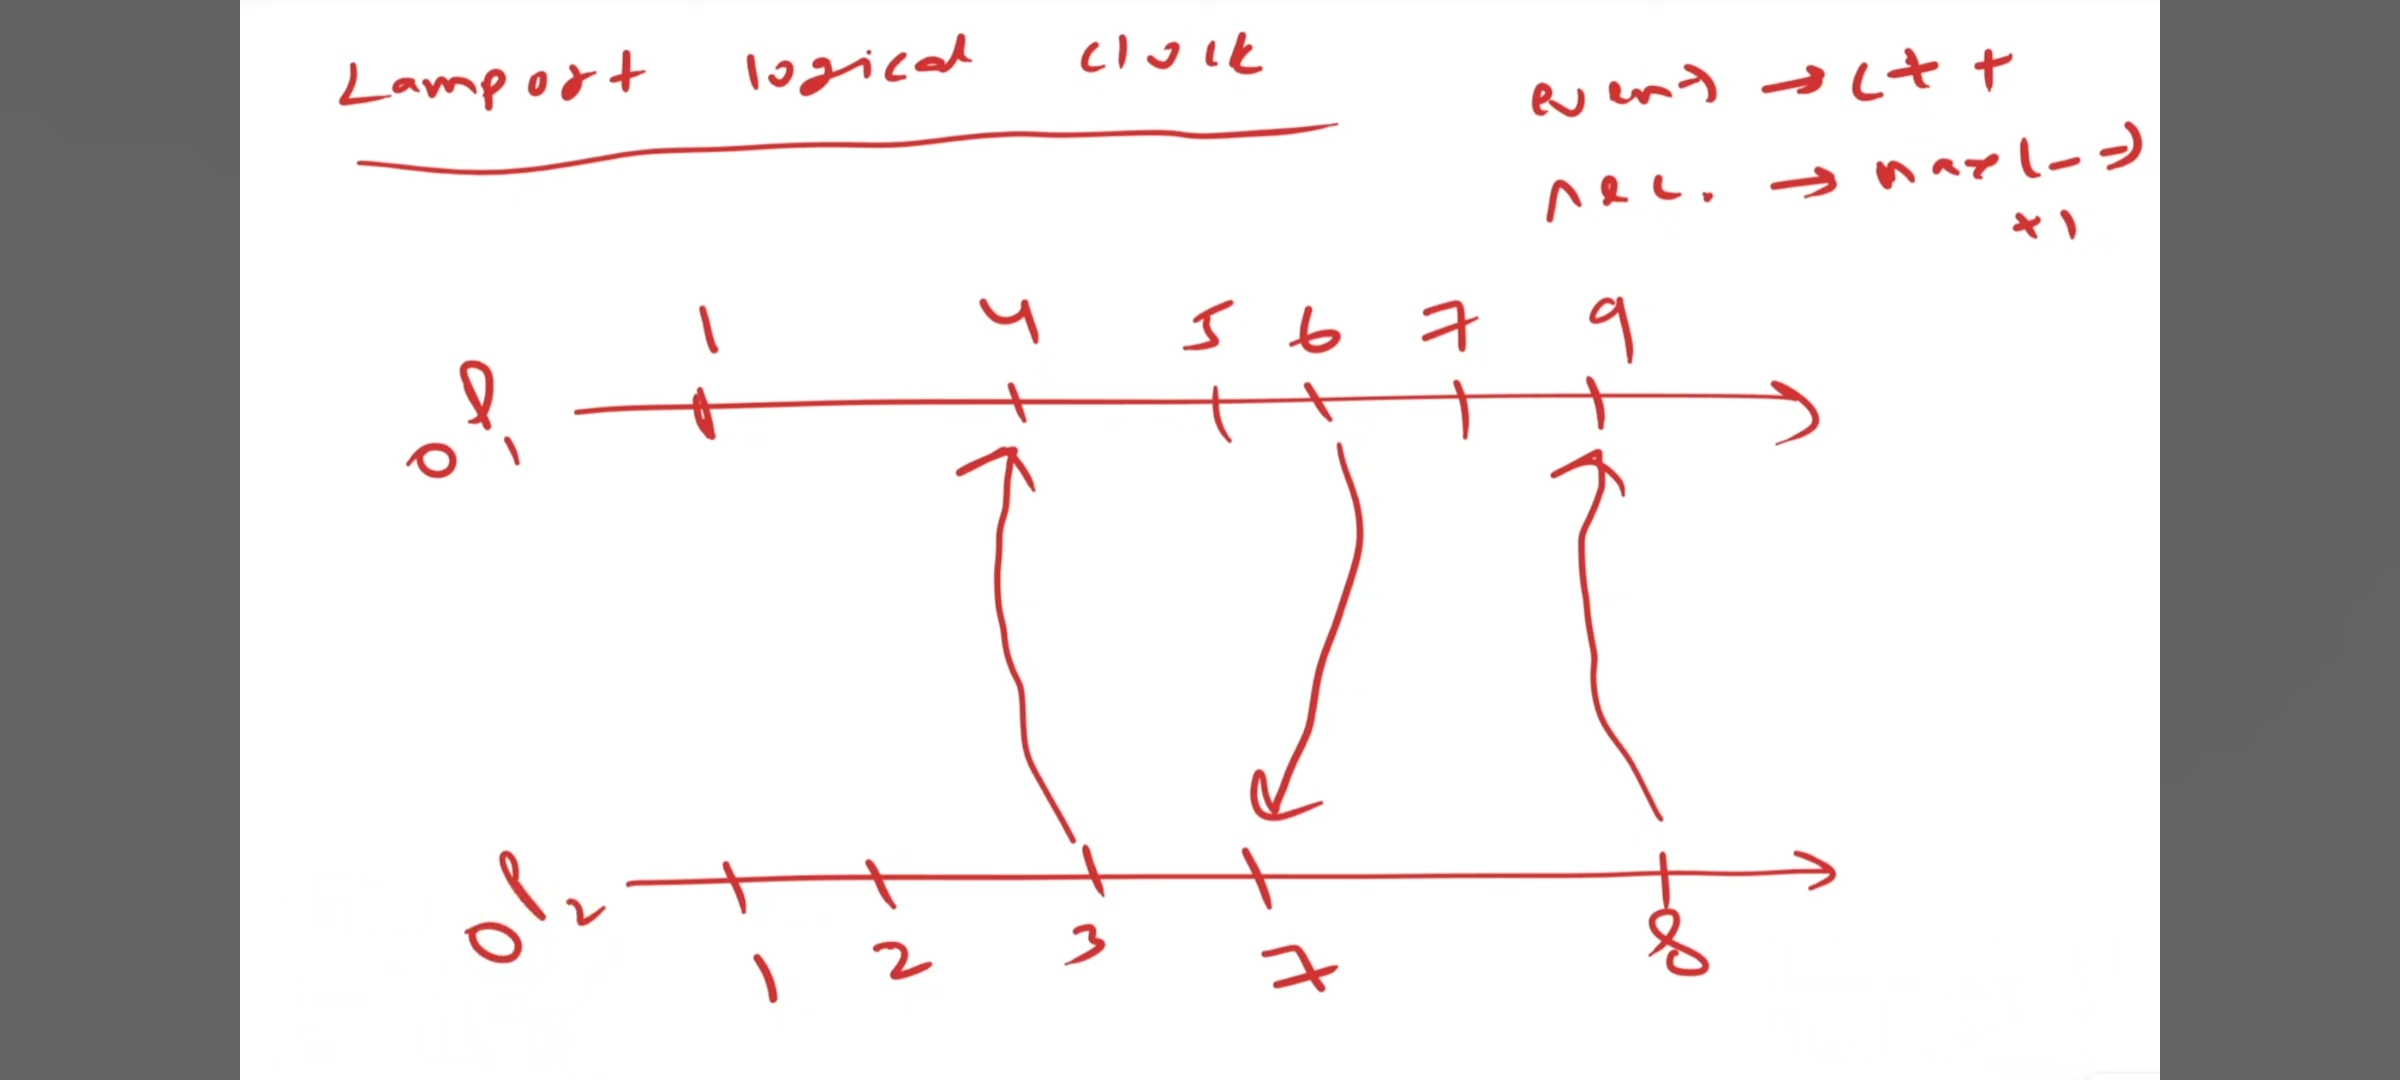 Lamport logical clock
event → c++
rec. → max(-=)
+1
1 4 5 6 7 9
P1
0
P2
0
1 2 3 7 8